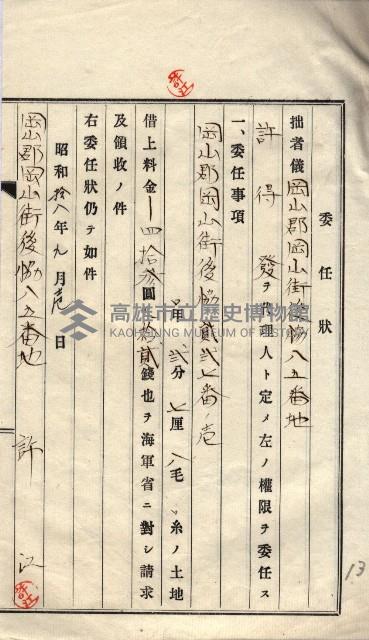 委任狀
拙者儀岡山郡岡山街後協八五番地
許得發ヲ代理人ト定メ左ノ權限ヲ委任ス
一、委任事項
岡山郡岡山街後協貳貳七番ノ壱
甲弐分七厘八毛糸ノ土地
借上料金一四拾參圓拾貳錢也ヲ海軍省ニ對シ請求
及領收ノ件
右委任狀仍テ如件
昭和拾八年九月 日
岡山郡岡山街後協八五番地
許 江
13
高雄市立歷史博物館
KAOHSIUNG MUSEUM OF HISTORY